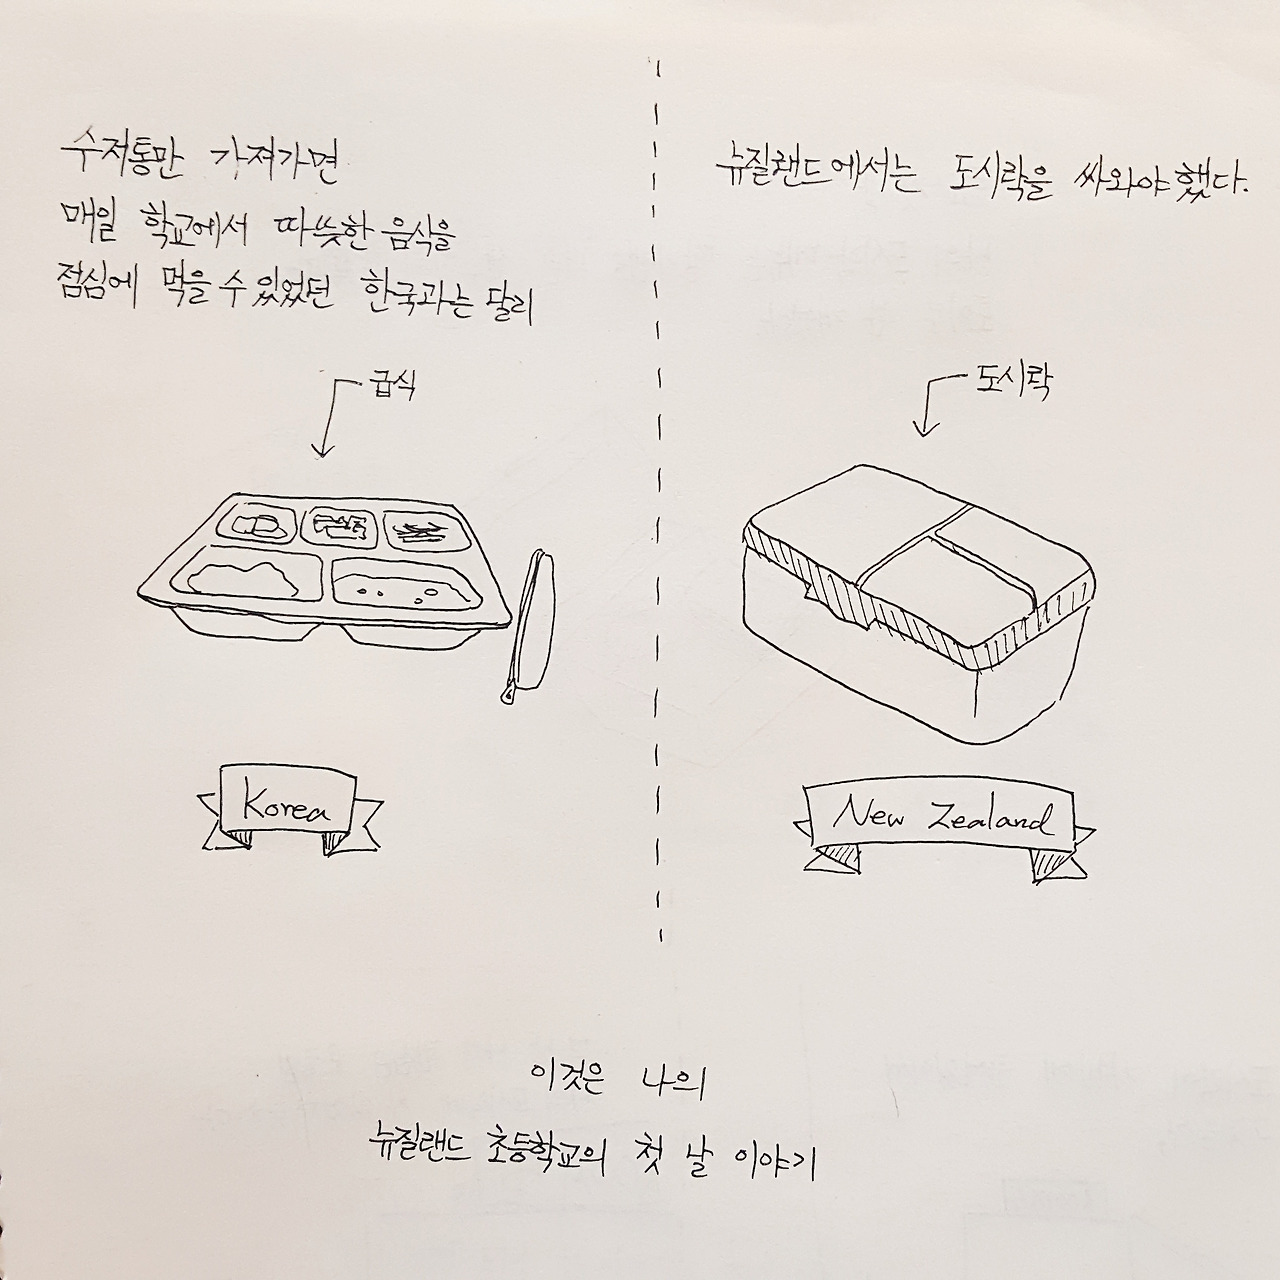 수저통만 가져가면
매일 학교에서 따뜻한 음식을
점심에 먹을 수 있었던 한국과는 달리
급식
Korea
뉴질랜드에서는 도시락을 싸와야했다.
도시락
New Zealand
이것은 나의
뉴질랜드 초등학교의 첫 날 이야기